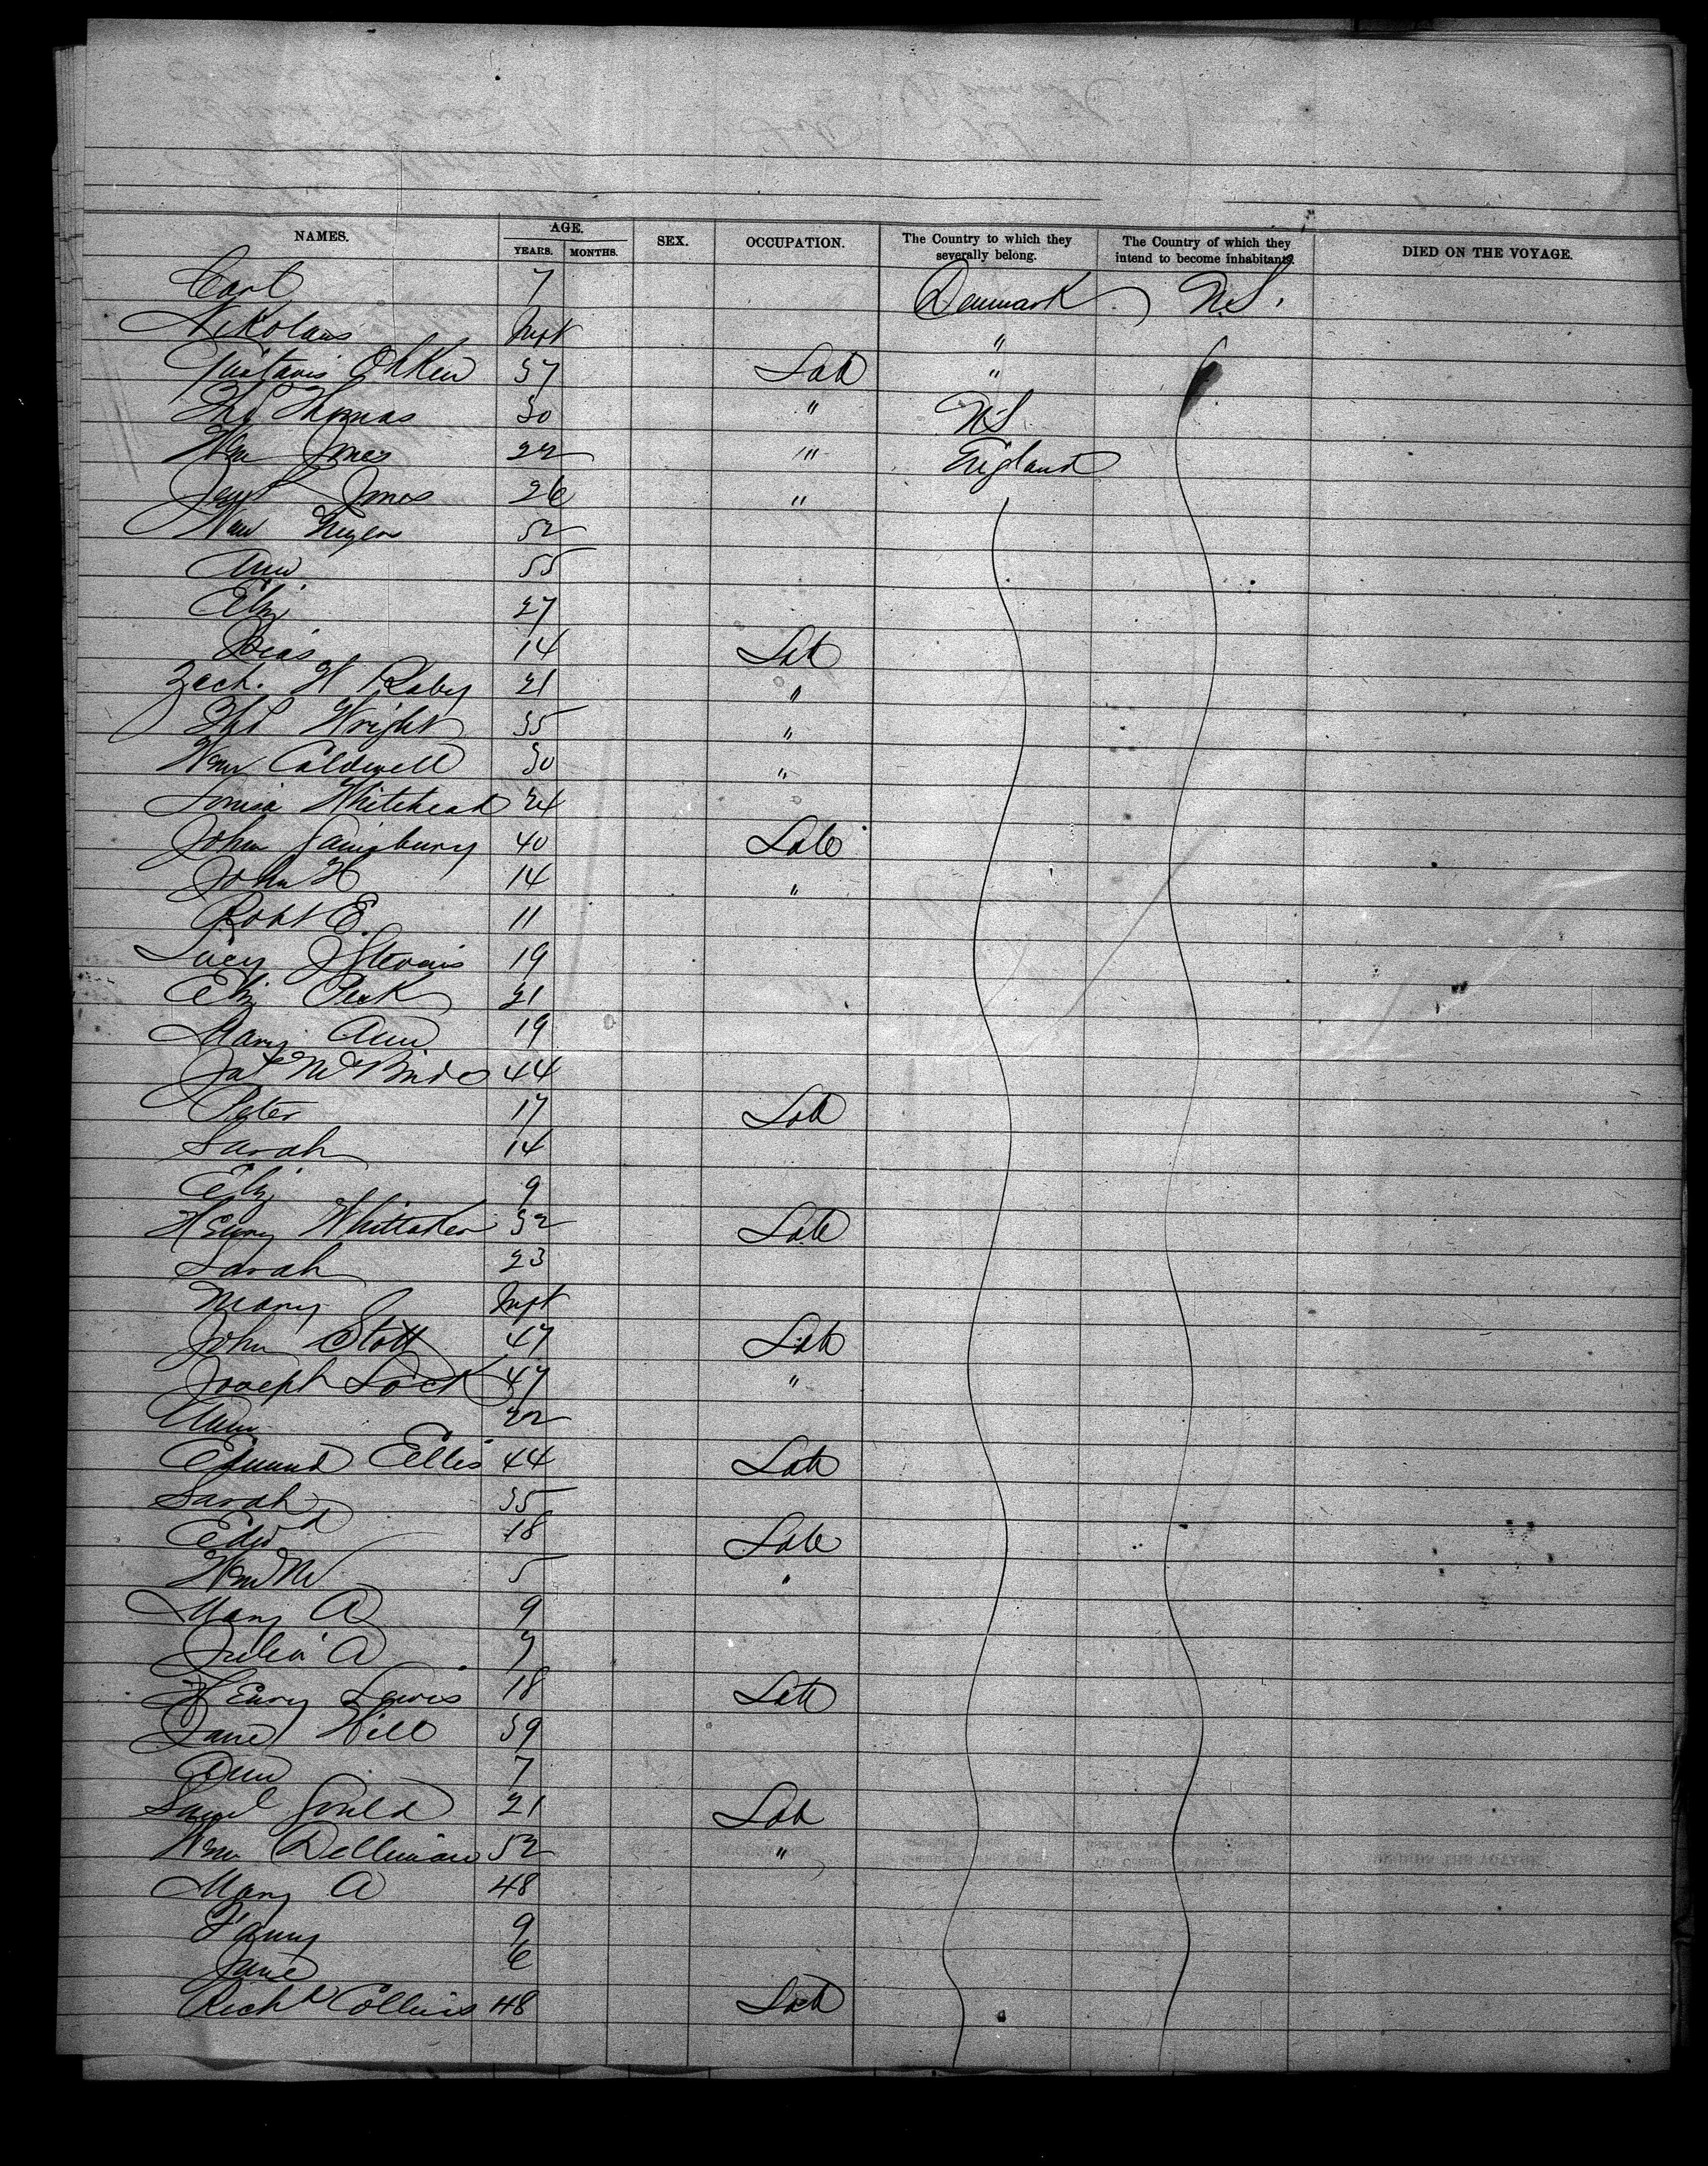 NAMES. AGE. SEX. OCCUPATION. The Country to which they severally belong. The Country of which they intend to become inhabitants. DIED ON THE VOYAGE.
YEARS. MONTHS.
Carl 7 Denmark U.S.
Nikolaus Inft "
Gustavis 37 Lab "
Ths Thomas 30 " U.S.
Wm Jones 22 " England
Jones 26 "
Wm 52
Ann 55
Eliz 27
14 Lab
Zech. H Raby 21 "
Ths Wright 35 "
Wm Caldwell 30 "
Louisa Whitehead 24
John Sainsbury 40 Lab
John H 14 "
Robt E. 11
Lucy J Stevens 19
Eliz Peck 21
Mary Ann 19
Jas McBride 44
Peter 17 Lab
Sarah 14
Eliz 9
Henry Whittaker 32 Lab
Sarah 23
Mary Inft
John Stott 47 Lab
Joseph Lock 47 "
Ann 22
Edmund Ellis 44 Lab
Sarah 35
Edwd 18 Lab
Wm M 5 "
Mary A 9
Julia A 7
Henry Lewis 18 Lab
Jane Hill 39
Ann 7
Saml Gould 21 Lab
Wm Delliman 52 "
Mary A 48
Fanny 9
Jane 6
Richd Collins 48 Lab